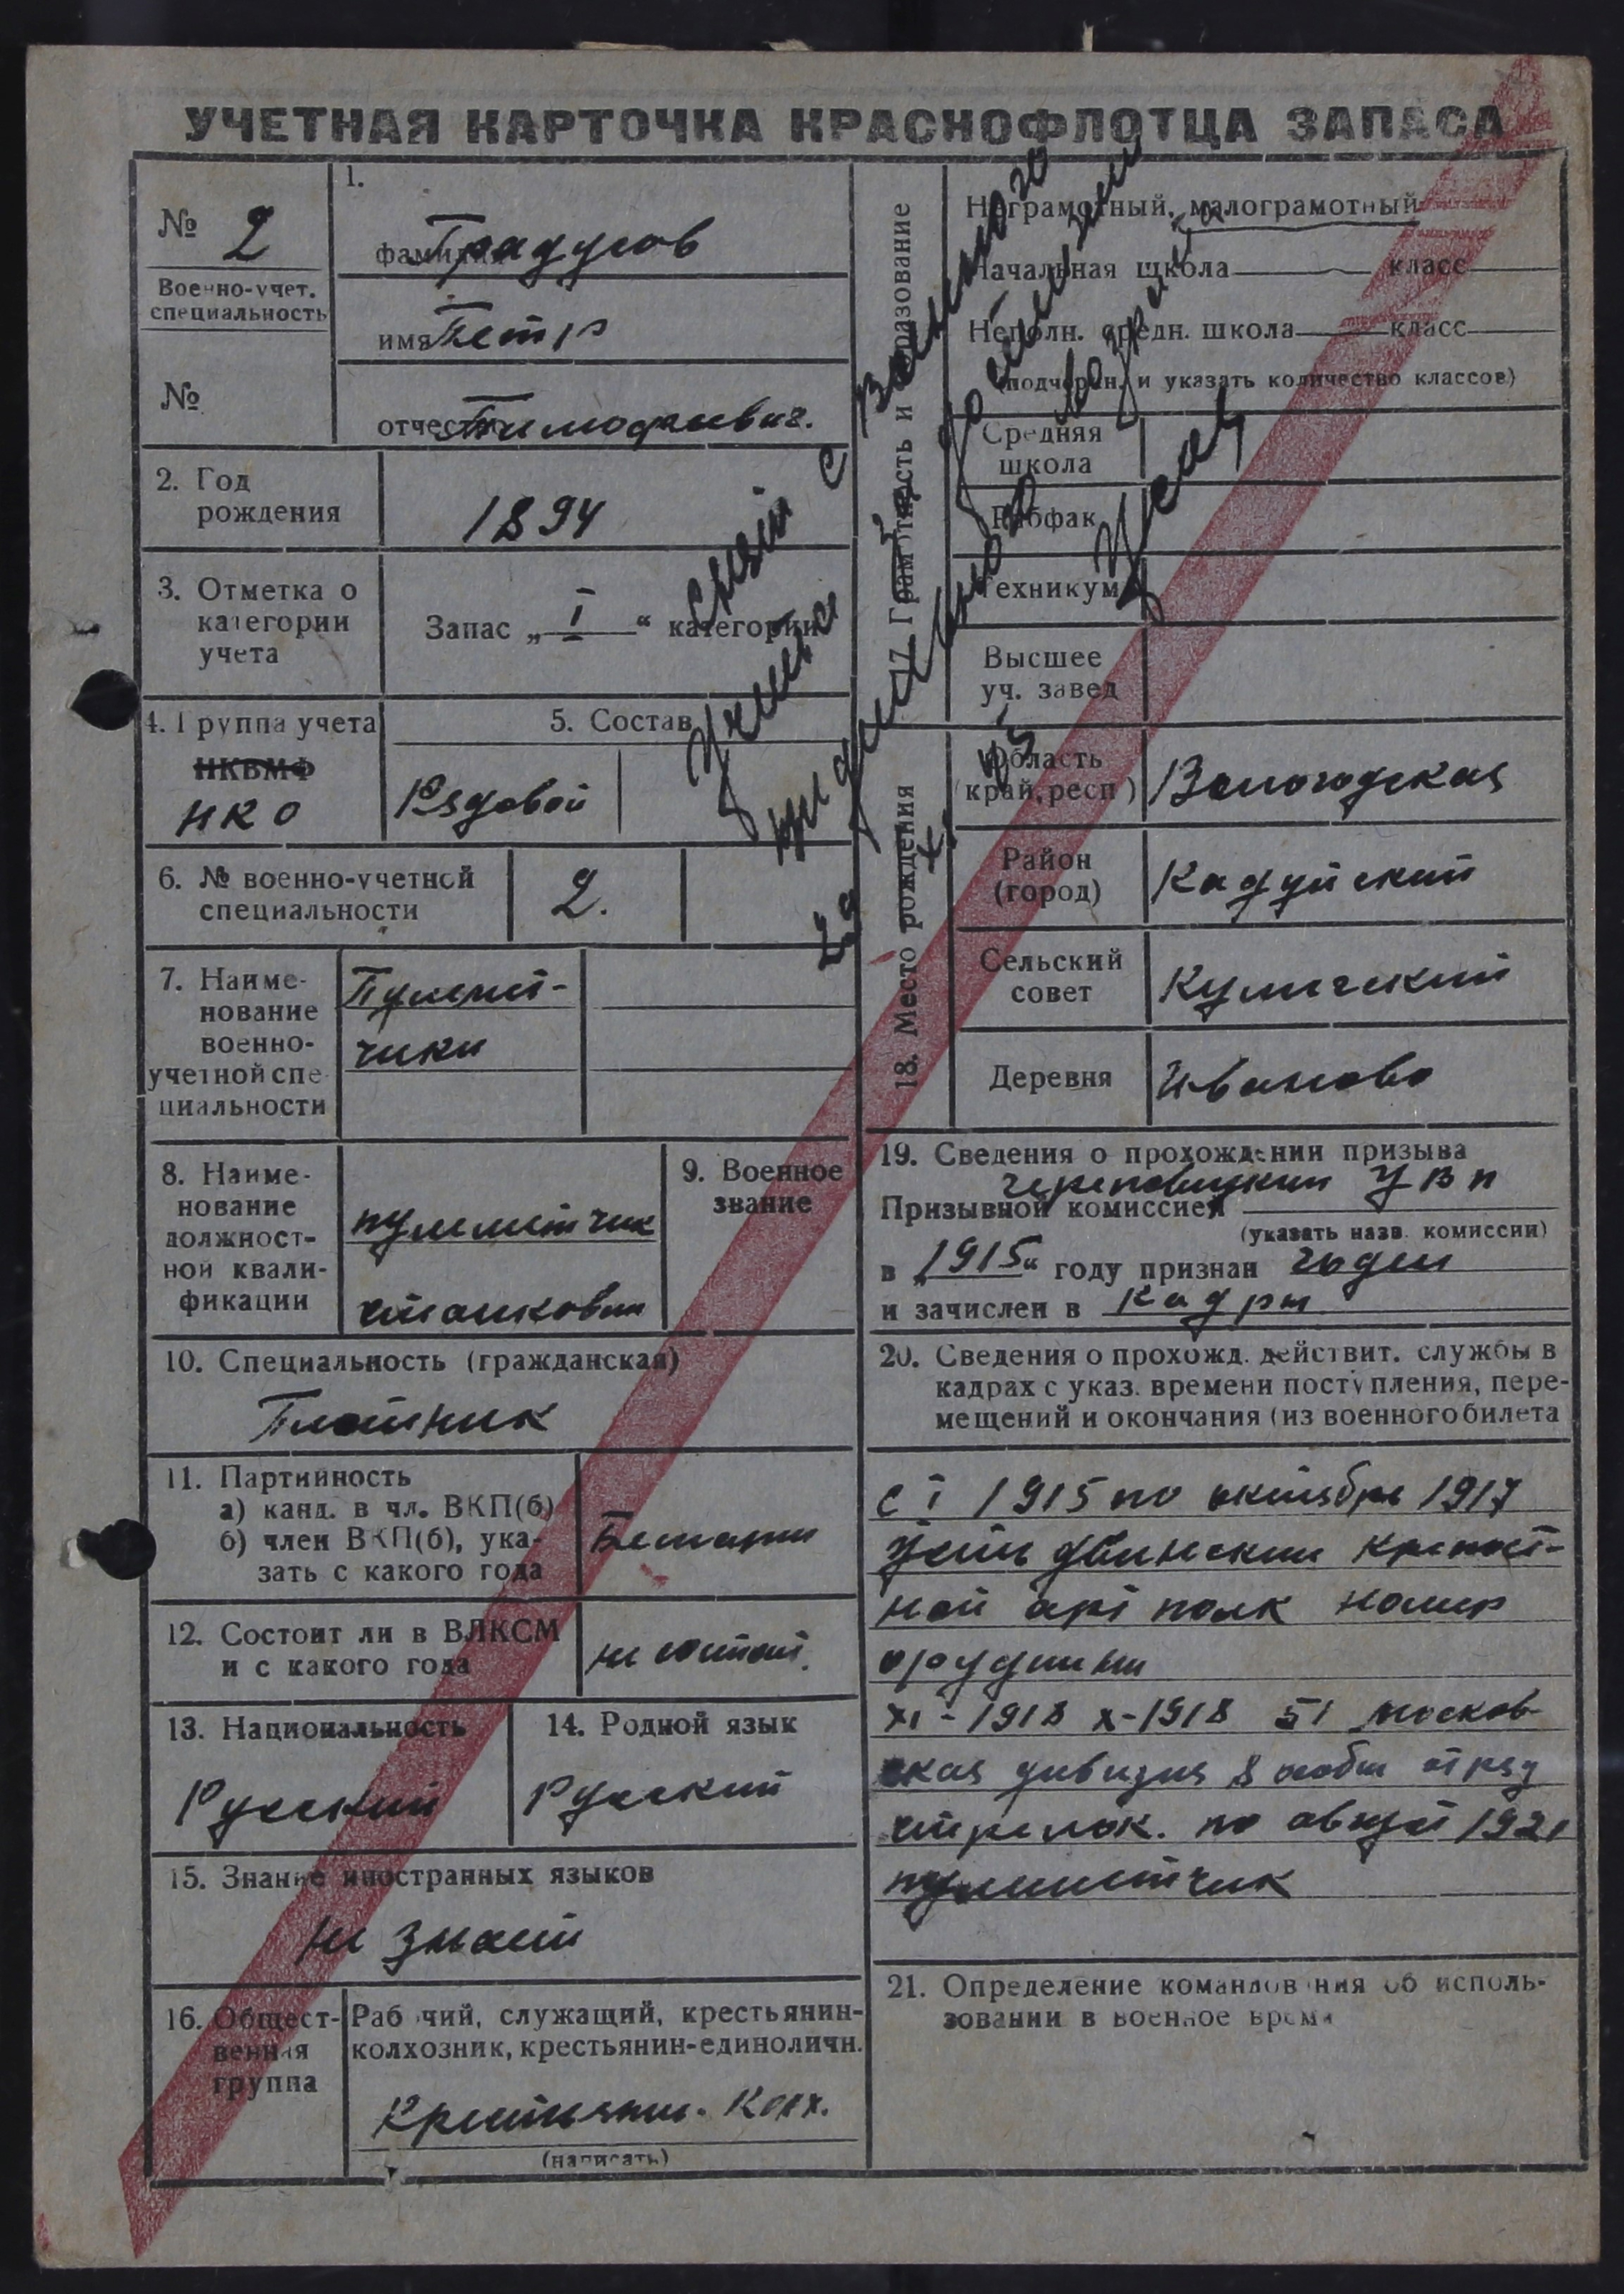 УЧЕТНАЯ КАРТОЧКА КРАСНОФЛОТЦА ЗАПАСА
№ 2
Военно-учет.
специальность
№
1.
фамилия Градусов
имя Петр
отчество Тимофеевич.
2. Год
рождения
1894
3. Отметка о
категории
учета
Запас „ I “ категории
4. Группа учета
НКВМФ
НКО
5. Состав
Рядовой
6. № военно-учетной
специальности
2.
7. Наиме-
нование
военно-
учетной спе
циальности
Пулемет-
чики
8. Наиме-
нование
должност-
ной квали-
фикации
пулеметчик
станковый
9. Военное
звание
10. Специальность (гражданская)
Плотник
11. Партийность
а) канд. в чл. ВКП(б)
б) член ВКП(б), ука-
зать с какого года
Беспарт
12. Состоит ли в ВЛКСМ
и с какого года
не состоит.
13. Национальность
Русский
14. Родной язык
Русский
15. Знание иностранных языков
не знает
16. Общест-
венная
группа
Рабочий, служащий, крестьянин-
колхозник, крестьянин-единоличн.
Крестьянин. Колх.
(написать)
17. Грамотность и образование
Неграмотный, малограмотный
Начальная школа класс
Неполн. средн. школа класс
(подчеркн. и указать количество классов)
Средняя
школа
Рабфак
Техникум
Высшее
уч. завед
18. Место рождения
Область
(край, респ)
Вологодская
Район
(город)
Кадуйский
Сельский
совет
Деревня
Иваново
Снят с
воинского
учета
по достижении
предельного
возраста
19. Сведения о прохождении призыва
Призывной комиссией Череповецким УВП
(указать назв. комиссии)
в „1915“ году признан годен
и зачислен в Кадры
20. Сведения о прохожд. действит. службы в
кадрах с указ. времени поступления, пере-
мещений и окончания (из военного билета
с I 1915 по октябрь 1917
Усть Двинский крепост-
ной арт полк номер
орудийный
XI - 1918 X - 1918 51 москов-
ская дивизия 8 особый отряд
стрелок. по август 1921
пулеметчик
21. Определение командования об исполь-
зовании в военное время